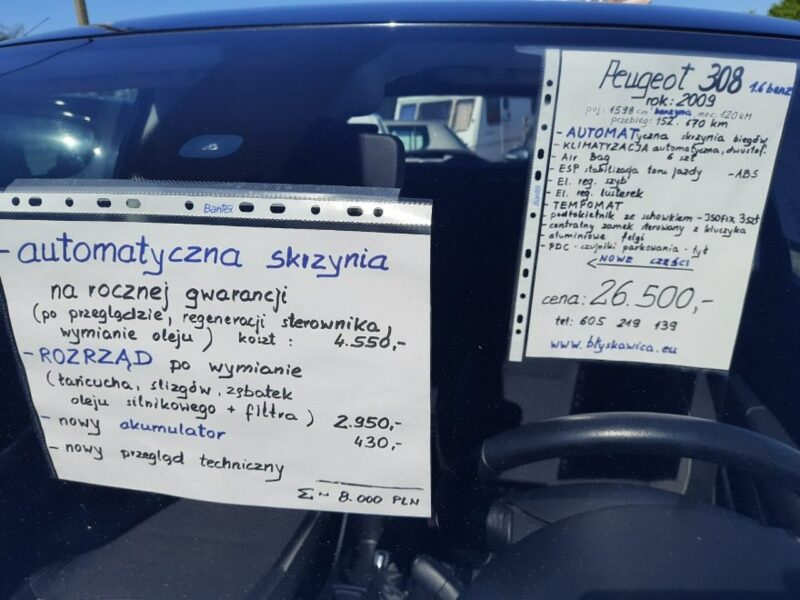 Bantex
- automatyczna skrzynia
na rocznej gwarancji
(po przeglądzie, regeneracji sterownika,
wymianie oleju) koszt : 4.550,-
- ROZRZĄD po wymianie
(łańcucha, ślizgów, zębatek
oleju silnikowego + filtra) 2.950,-
- nowy akumulator 430,-
- nowy przegląd techniczny
Σ ~ 8.000 PLN
Bantex
Peugeot 308 1.6 benz
rok: 2009
poj: 1598 cm³ benzyna moc: 120 kM
przebieg: 152. 670 km
- AUTOMATyczna skrzynia biegów
- KLIMATYZACJA automatyczna, dwustref.
- Air Bag 6 szt
- ESP stabilizacja toru jazdy - ABS
- El. reg. szyb
- El. reg. lusterek
- TEMPOMAT
- podłokietnik ze schowkiem - ISOFIX 3szt
- centralny zamek sterowany z kluczyka
- aluminiowe felgi
- PDC - czujniki parkowania - tył
← NOWE CZĘŚCI
cena: 26.500,-
tel: 605 219 139
www.błyskawica.eu